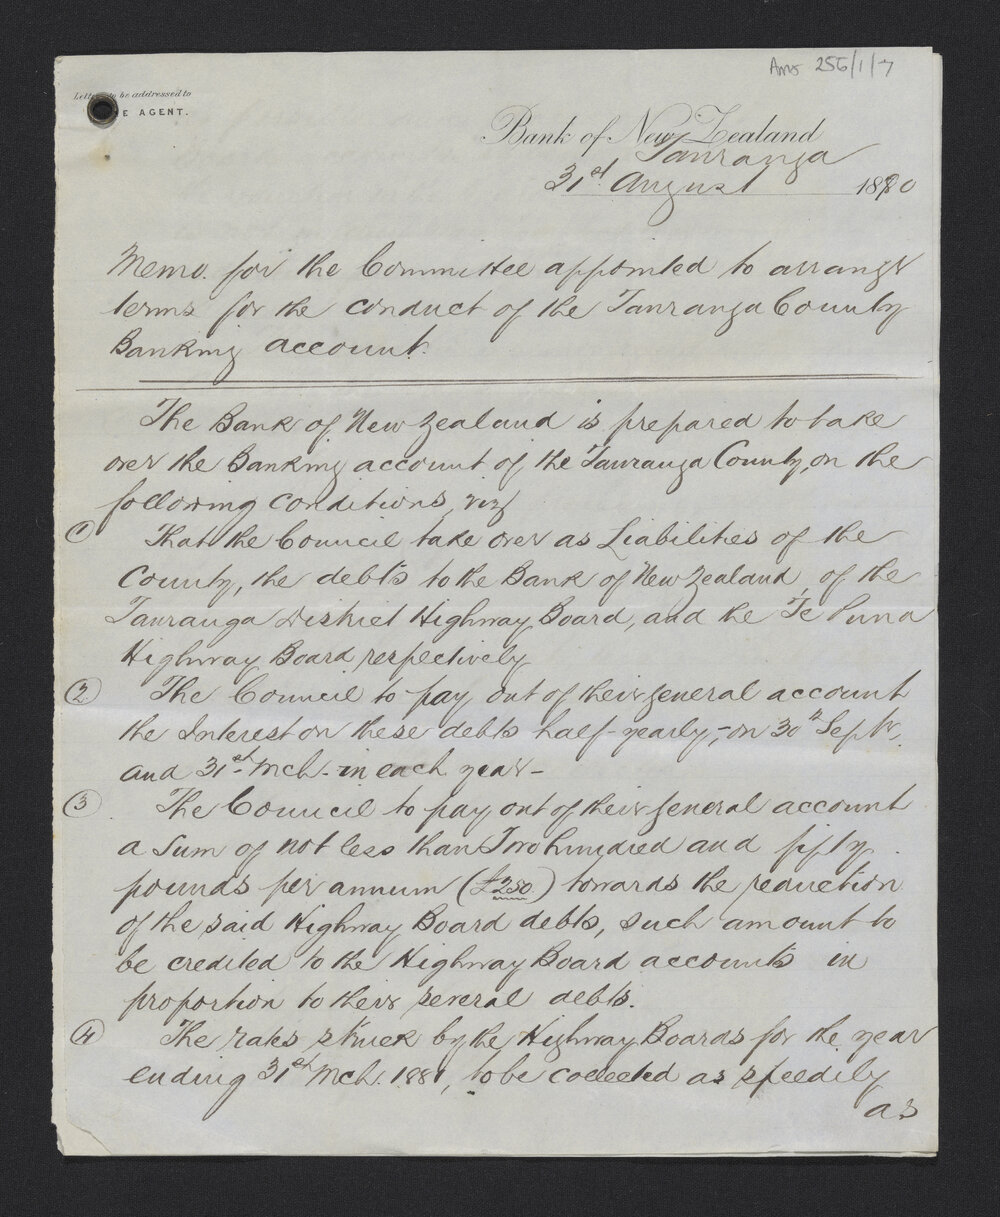 Ams 255/1/7
Letters to be addressed to
THE AGENT.
Bank of New Zealand
Tauranga
31st August 1880
Memo. for the Committee appointed to arrange
terms for the conduct of the Tauranga County
Banking account.
The Bank of New Zealand is prepared to take
over the Banking account of the Tauranga County, on the
following conditions, viz
1 That the Council take over as Liabilities of the
County, the debts to the Bank of New Zealand, of the
Tauranga District Highway Board, and the Te Puna
Highway Board respectively
2. The Council to pay out of their general account
the Interest on these debts half-yearly, - on 30th Septr.
and 31st Mch. - in each year -
3 The Council to pay out of their general account
a sum of not less than Two hundred and fifty
pounds per annum (£250.) towards the reduction
of the said Highway Board debts, such amount to
be credited to the Highway Board accounts in
proportion to their several debts.
4 The rates struck by the Highway Boards for the year
ending 31st Mch. 1881, to be collected as speedily
as